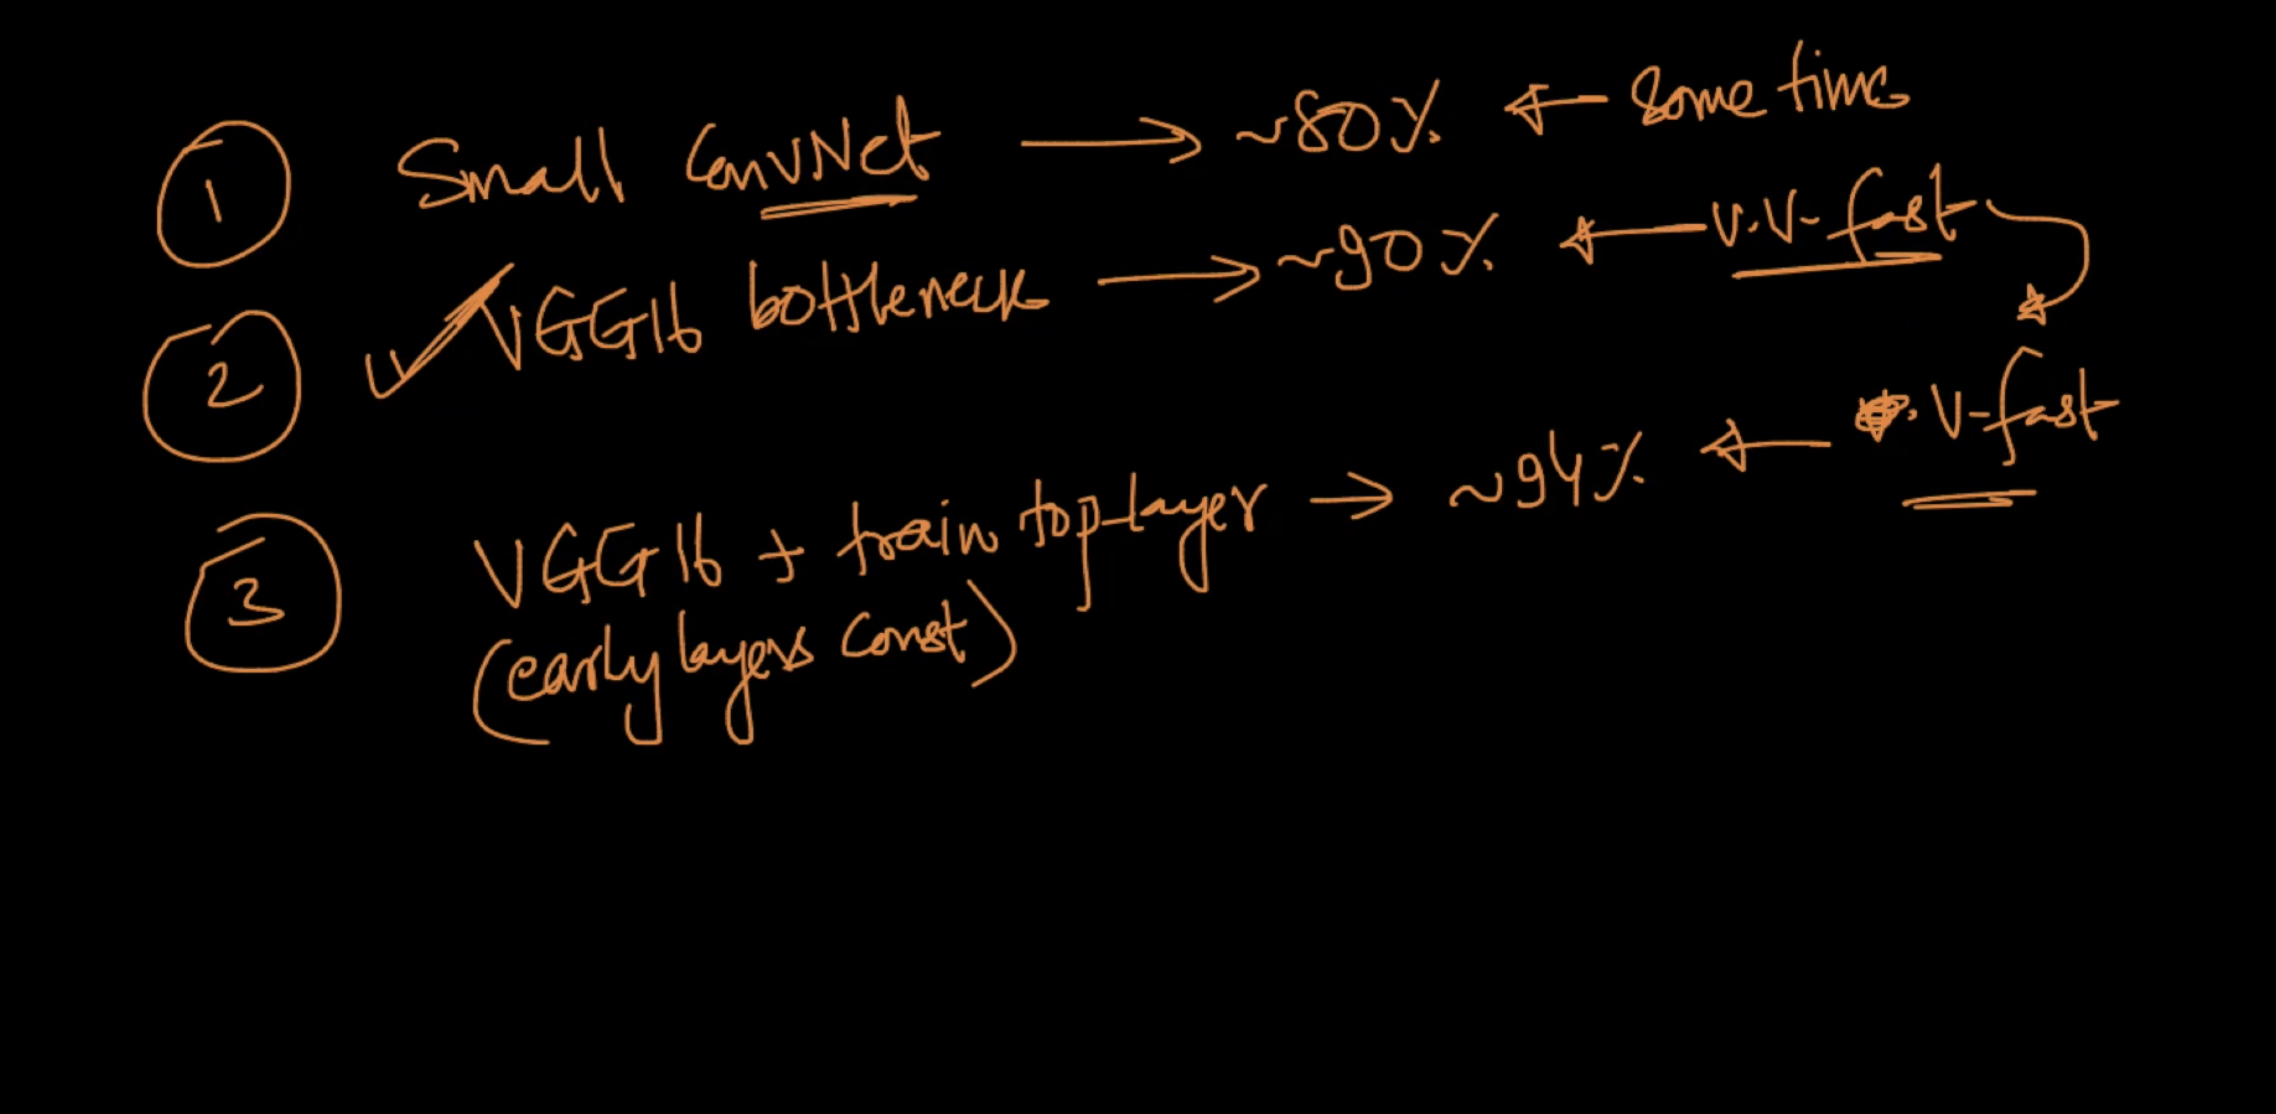 1 Small ConvNet → ~80% ← Some time
2 ✓ VGG16 bottleneck → ~90% ← v.v. fast
3 VGG16 + train top-layer → ~94% ← v-fast
(early layers const)